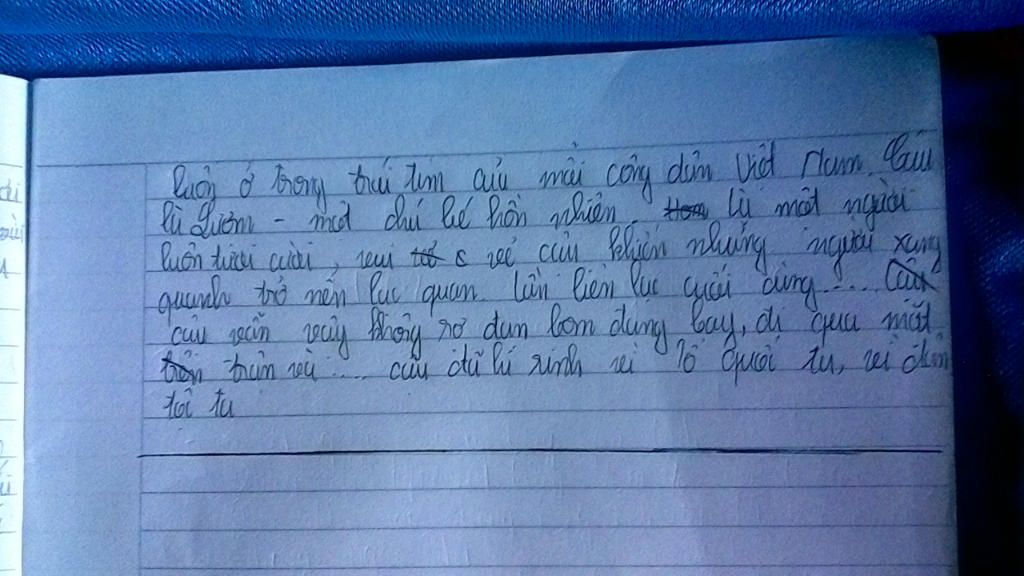 luôn ở trong trái tim của mỗi công dân Việt Nam. Cậu
là Lượm - một chú bé hồn nhiên. là một người
luôn tươi cười, vui vẻ của khiến những người xung
quanh trở nên lạc quan. Lần liên lạc cuối cùng....
cậu vẫn vậy không sợ đạn bom đang bay, đi qua mặt
trận và .... cậu đã hi sinh vì Tổ Quốc ta, vì dân
tội ta